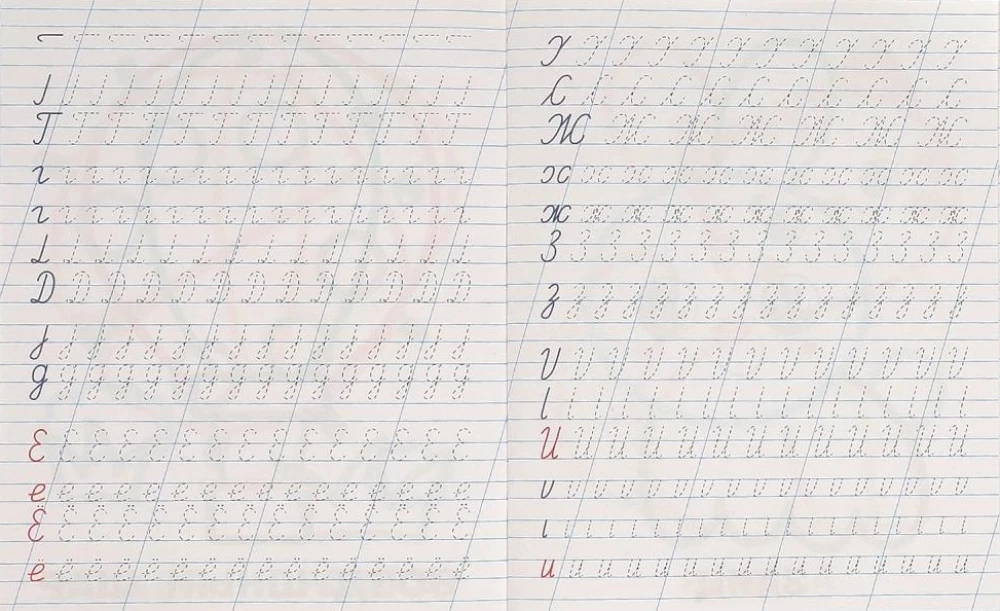 Г Г Г Г Г Г Г Г Г Г Г Г Г
г г г г г г г г г г г г г г г г
Д Д Д Д Д Д Д Д Д Д Д Д Д
д д д д д д д д д д д д д д д д
Е Е Е Е Е Е Е Е Е Е Е Е Е Е Е
е е е е е е е е е е е е е е е е
Ё Ё Ё Ё Ё Ё Ё Ё Ё Ё Ё Ё Ё Ё Ё
ё ё ё ё ё ё ё ё ё ё ё ё ё ё ё ё
Ж Ж Ж Ж Ж Ж Ж
ж ж ж ж ж ж ж ж ж ж ж
З З З З З З З З З З З З З З З З
з з з з з з з з з з з з з з з з
И И И И И И И И И И И И И
и и и и и и и и и и и и и и и и